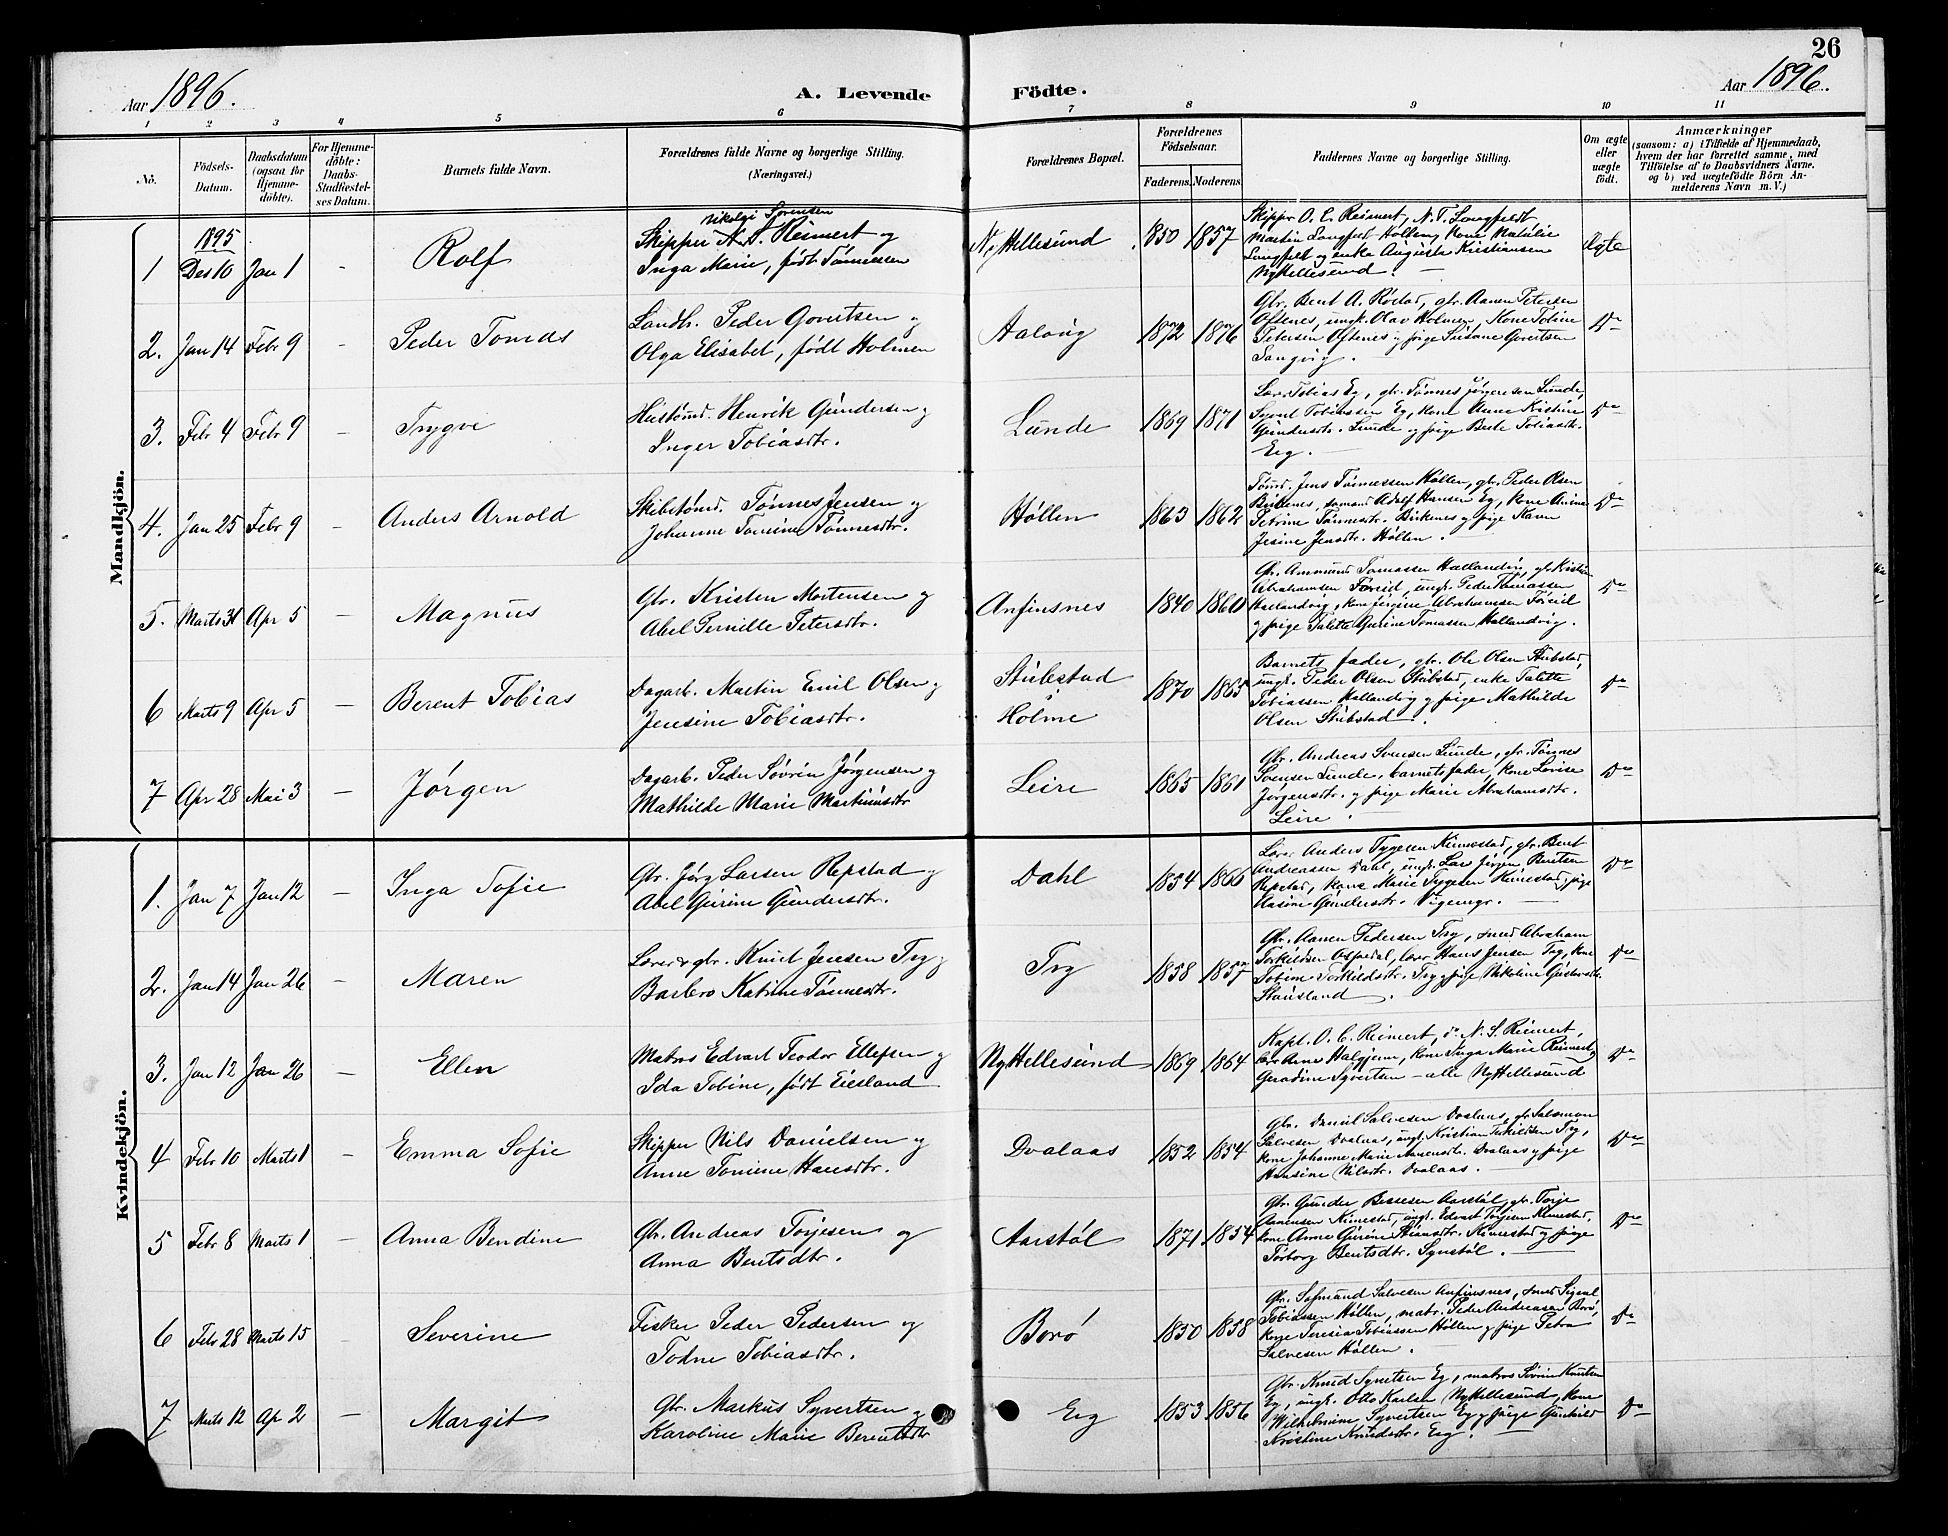 26
Aar 1896.
A. Levende
Födte.
Aar 1896.
1 2 3 4 5 6 7 8 9 10 11
No.
Fødsels-
Datum.
Daabsdatum
(ogsaa for
Hjemme-
døbte).
For Hjemme-
døbte:
Daabs-
Stadfæstel-
ses Datum.
Barnets fulde Navn.
Forældrenes fulde Navne og borgerlige Stilling.
(Næringsvei.)
Forældrenes Bopæl.
Forældrenes
Fødselsaar.
Faderens. Moderens.
Faddernes Navne og borgerlige Stilling.
Om ægte
eller
uægte
født.
Anmærkninger
(saasom: a) i Tilfælde af Hjemmedaab,
hvem der har forrettet samme, med
Tilføielse af to Daabsvidners Navne.
og b) ved uægtefødte Börn An-
melderens Navn m. V.)
Mandkjön.
1895
1 Des 10 Jan 1 - Rolf
Nikolai Sørensen
Skipper N. S. Reimert og
Inga Marie, født Tønnessen
Ny Hellesund 1850 1857
Skipper O. C. Reimert, N. T. Langfeldt
Martin Langfeldt Høllen, kone Natalie
Langfeldt og enke Augusta Kristiansen
NyHellesund.
ægte
2. Jan 14 Febr 9 - Peder Tomas
Landh. Peder Govertsen og
Olga Elisabet, født Holmen
Aaløvig 1872 1876
Gbr. Bent A. Røstad, gbr. Aanen Petersen
Oftenes, ungk. Olav Holmen, Kone Tobine
Petersen Oftenes og pige Susane Govertsen
Langvig.
Do
3. Febr 4 Febr 9 - Trygve
Hustømd. Henrik Gundersen og
Inger Tobiasdtr.
Lunde 1869 1871
Lærer Tobias Eg, gbr. Tønnes Jørgensen Lunde,
Syvert Tobiassen Eg, kone Anne Kristine
Gundersdtr. Lunde og pige Berte Tobiasdtr.
Eeg.
Do
4. Jan 25 Febr 9 - Anders Arnold
Skibstømd. Tønnes Jensen og
Johanne Tomine Tønnesdtr.
Høllen 1863 1862
Tømd. Jens Tønnessen Høllen, gbr. Peder Olsen
Birkenes, sømand Adolf Hansen Eg, kone Anine
Petrine Tønnesdtr. Birkenes og pige Karen
Jesine Jensdtr. Høllen.
Do
5. Marts 31 Apr 5 - Magnus
Gbr. Kristen Mortensen og
Abel Pernille Petersdtr.
Anfinsnes 1840 1860
Gbr. Ammund Tomassen Hallandvig, gbr. Kristian
Abrahamsen Føreid, ungk. Peder Thomassen
Hallandvig, kone Jørgine Abrahamsen Føreid
og pige Talette Gurine Tomassen Hallandvig.
Do
6 Marts 9 Apr 5 - Berent Tobias
Dagarb. Martin Emil Olsen og
Jensine Tobiasdtr.
Stubstad
i
Holme
1870 1865
Barnets fader, gbr. Ole Olsen Stubstad,
ungk. Peder Olsen Stubstad, enke Talette
Tobiassen Hallandvig og pige Mathilde
Olsen Stubstad.
Do
7 Apr 28 Mai 3 - Jørgen
Dagarb. Peder Søvrin Jørgensen og
Mathilde Marie Martinusdtr
Leire 1865 1861
Gbr. Andreas Svensen Lunde, gbr. Tønnes
Svensen Lunde, barnets fader, kone Lovise
Jørgensdtr. og pige Marie Abrahamsdtr.
Leire.
Do
Kvindekjön.
1. Jan 7 Jan 12 - Inga Sofie
Gbr. Jørg Larsen Repstad og
Abel Gurine Gundersdtr.
Dahl 1854 1866
Lærer Anders Tygesen Kimestad, gbr. Bent
Andreassen Dahl, ungk. Lars Jørgen Bentsen
Repstad, kone Marie Tygesen Kimestad, pige
Kasine Gundersdtr. Vigemyr.
Do
2. Jan 14 Jan 26 - Maren
Lærer & gbr. Knut Jensen Try og
Barbro Katrine Tønnesdtr.
Try 1858 1857
Gbr. Aanen Pedersen Try, smed Abraham
Torkildsen Ospedal, lærer Hans Jensen Try, kone
Tobine Torkildsdtr. Try og pige Nikoline Gustavsdtr.
Stausland.
Do
3. Jan 12 Jan 26 - Ellen
Matros Edvart Teodor Ellefsen og
Ida Tobine, født Eiesland
NyHellesund 1869 1864
Kapt. O. C. Reimert, do N. S. Reimert,
Lærer Arne Halgjem, kone Inga Marie Reimert og
Geradine Syvertsen - alle NyHellesund
Do
4 Febr 10 Marts 1 - Emma Sofie
Skipper Nils Danielsen og
Anne Tomine Hansdtr.
Dvalaas 1852 1854
Gbr. Daniel Salvesen Dvalaas, gbr. Salomon
Salvesen Dvalaas, ungk. Kristian Terkildsen Try,
kone Johanne Marie Aanensdtr. Dvalaas og pige
Hansine Nilsdtr. Dvalaas.
Do
5 Febr 8 Marts 1 - Anna Bendine
Gbr. Andreas Torjesen og
Anna Bentsdtr.
Aarstøl 1871 1854
Gbr. Gunder Bessesen Aarstøl, gbr. Torje
Aanensen Kimestad, ungk. Edvart Torjesen Kimestad,
kone Anne Gurine Stiansdtr. Kimestad og pige
Torborg Bentsdtr. Synstøl.
Do
6 Febr 28 Marts 15 - Severine
Fisker Peder Pedersen og
Todne Tobiasdtr.
Borø 1850 1858
Gbr. Sofmund Salvesen Anfinsnes, smed Sigval
Tobiassen Høllen, matr. Peder Andreasen Borø,
kone Teresia Tobiassen Høllen og pige Petra
Salvesen Høllen.
Do
7 Marts 12 Ap 2 - Margit
Gbr. Markus Syvertsen og
Karoline Marie Berentsdtr
Eeg 1853 1856
Gbr. Knud Syvertsen Eg, matros Søvrin Knutsen
Eg, ungk. Otto Karlsen NyHellesund, kone
Wilhelmine Syvertsen Eg og pige Gunhild
Kristine Knudsdtr. Eeg.
Do